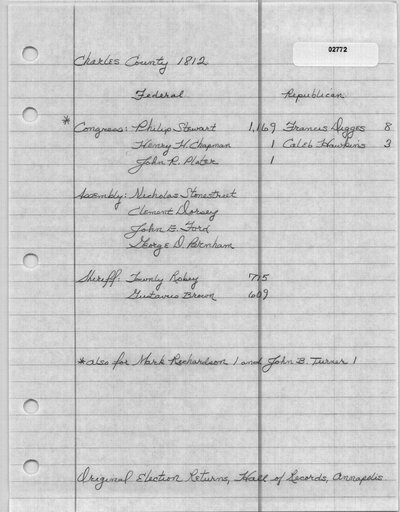 02772
Charles County 1812
Federal Republican
* Congress: Philip Stewart 1,169 Francis Digges 8
Henry H. Chapman 1 Caleb Hawkins 3
John R. Plater 1
Assembly: Nicholas Stonestreet
Clement Dorsey
John E. Ford
George D. Parnham
Sheriff: Townly Robey 715
Gustavus Brown 609
*also for Mark Richardson 1 and John B. Turner 1
Original Election Returns, Hall of Records, Annapolis